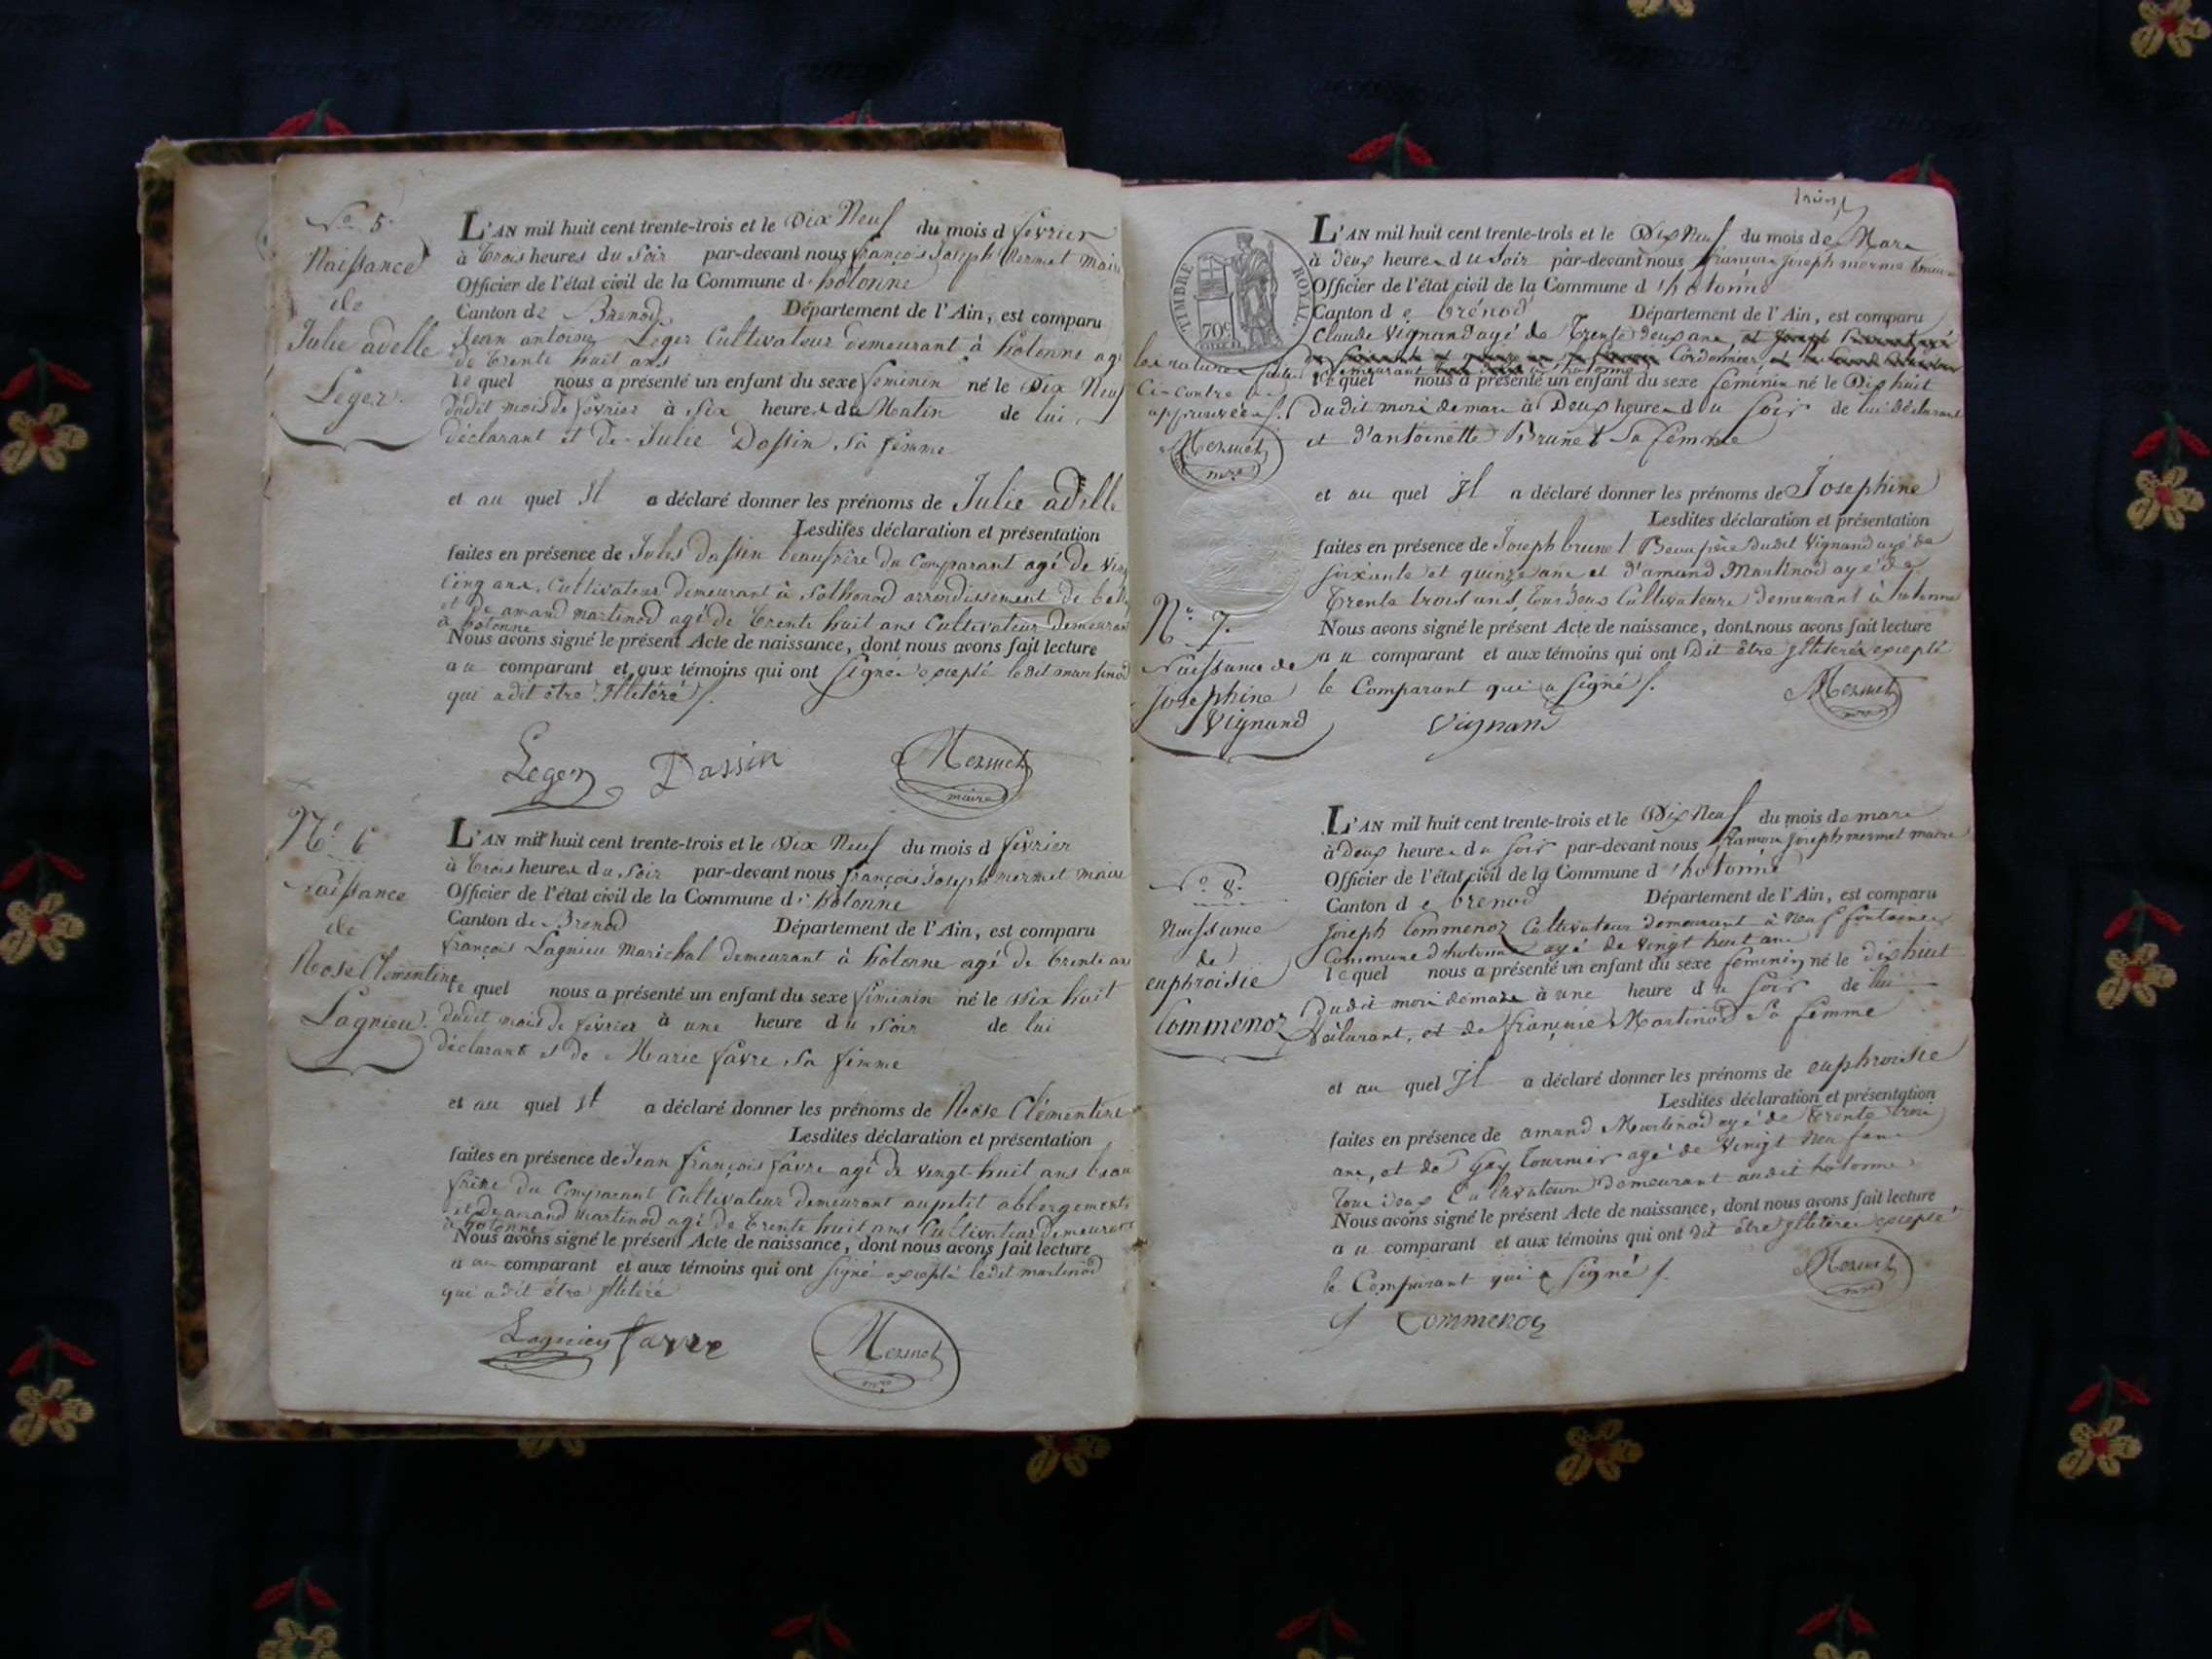 No 5.
Naissance
de
Julie adelle
Leger.
L'AN mil huit cent trente-trois et le Dix Neuf du mois d fevrier
à trois heures du Soir par-devant nous françois Joseph Mermet Maire
Officier de l'état civil de la Commune d. hotonne
Canton de Brenod Département de l'Ain, est comparu
Jean antoine Leger Cultivateur demeurant à hotonne agé
de trente huit ans
lequel nous a présenté un enfant du sexe feminin né le Dix Neuf
dudit mois de fevrier à Six heures du Matin de lui
déclarant et de Julie Dassin Sa femme
et au quel Il a déclaré donner les prénoms de Julie adelle
Lesdites déclaration et présentation
faites en présence de Jules dassin beaufrère du Comparant agé de Vingt
Cinq ans, Cultivateur demeurant à Sothonod arrondissement de
et de amand martinod agé de trente huit ans Cultivateur Demeurant
à hotonne
Nous avons signé le présent Acte de naissance, dont nous avons fait lecture
au comparant et aux témoins qui ont Signé excepté le dit martinod
qui a dit être Illitéré ſ.
Leger Dassin Mermet
maire
No 6
Naissance
de
Rose Clementine
Lagnieu.
L'AN mil huit cent trente-trois et le Dix Neuf du mois d fevrier
à trois heures du Soir par-devant nous françois Joseph mermet maire
Officier de l'état civil de la Commune d. hotonne
Canton de Brenod Département de l'Ain, est comparu
françois Lagnieu Maréchal demeurant à hotonne agé de trente ans
le quel nous a présenté un enfant du sexe feminin né le Dix huit
dudit mois de fevrier à une heure du Soir de lui
déclarant et de Marie favre Sa femme
et au quel Il a déclaré donner les prénoms de Rose Clémentine
Lesdites déclaration et présentation
faites en présence de Jean françois favre agé de vingt-huit ans beau
frère du Comparant Cultivateur demeurant au petit abbergements
et de amand martinod agé de trente huit ans Cultivateur Demeurant
à hotonne
Nous avons signé le présent Acte de naissance, dont nous avons fait lecture
au comparant et aux témoins qui ont Signé excepté ledit martinod
qui a dit être Illitéré
Lagnieu favre Mermet
mre
TIMBRE ROYAL
70c
L'AN mil huit cent trente-trois et le Dix Neuf du mois de Mars
à deux heures du Soir par-devant nous françois Joseph mermet
Officier de l'état civil de la Commune d'hotonne
Canton de brénod Département de l'Ain, est comparu
Claude Vignand agé de Trente deux ans
Cordonnier
demeurant
lequel nous a présenté un enfant du sexe feminin né le Dix huit
Dudit mois de mars à Deux heures du Soir de lui déclarant
et d'antoinette Brunet Sa femme
Ci-Contre
approuvée ſ.
Mermet
mre
et au quel Il a déclaré donner les prénoms de Josephine
Lesdites déclaration et présentation
faites en présence de Joseph brunet Beaupère Dudit Vignand agé de
soixante et quinze ans et d'amand Martinod agé de
trente trois ans, tous deux Cultivateurs demeurant à hotonne
Nous avons signé le présent Acte de naissance, dont nous avons fait lecture
au comparant et aux témoins qui ont Dit être Illitérés excepté
le Comparant qui a Signé ſ.
No 7.
Naissance de
Josephine
Vignand
Vignand Mermet
mre
L'AN mil huit cent trente-trois et le Dix Neuf du mois de mars
à deux heures du Soir par-devant nous françois Joseph mermet maire
Officier de l'état civil de la Commune d'hotonne
Canton de brenod Département de l'Ain, est comparu
Joseph Commenoz Cultivateur demeurant à Neuf fontaines
Commune d'hotonne agé de vingt huit ans
lequel nous a présenté un enfant du sexe feminin né le dix huit
Dudit mois de mars à une heure du Soir de lui
Déclarant, et de françoise Martinod Sa femme
No 8.
Naissance
de
euphroisie
Commenoz
et au quel Il a déclaré donner les prénoms de euphroisie
Lesdites déclaration et présentation
faites en présence de amand Martinod agé de trente trois
ans, et de Gay Tournier agé de Vingt Neuf ans
tous deux Cultivateurs demeurant audit hotonne
Nous avons signé le présent Acte de naissance, dont nous avons fait lecture
au comparant et aux témoins qui ont dit être Illitérés excepté
le Comparant qui a Signé ſ.
Commenoz Mermet